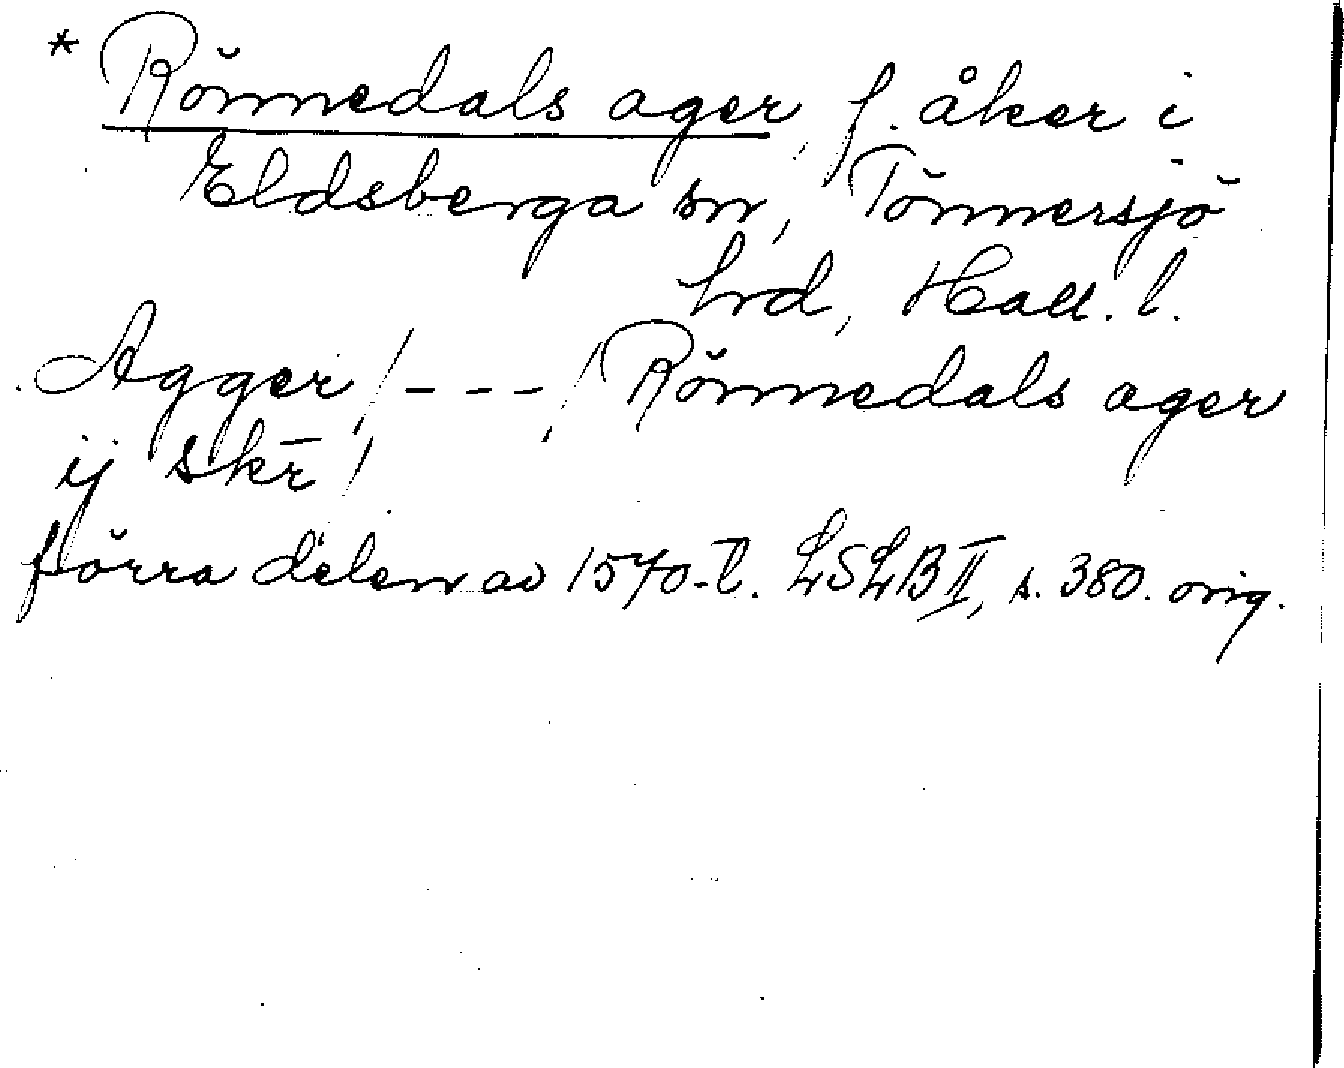 * Rönnedals ager, f. åker i
Eldsberga sn, Tönnersjö
hrd, Hall. l.
Agger / - - - / Rönnedals ager
ij skr̄ /
förra delen av 1570-t. LSLB II, s. 380. orig.